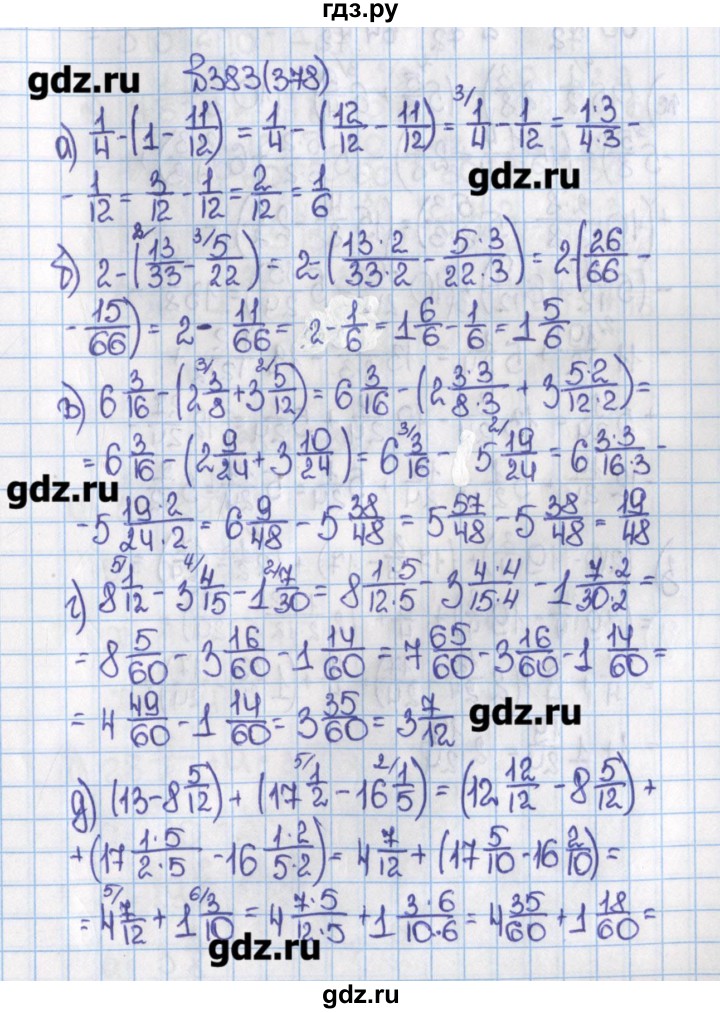 гдз.ру
gdz.ru
№383(378)
а) 1/4 - (1 - 11/12) = 1/4 - (12/12 - 11/12) = ³⁾1/4 - 1/12 = 1·3/4·3 -
gdz.ru
- 1/12 = 3/12 - 1/12 = 2/12 = 1/6
б) 2 - (²⁾13/33 - ³⁾5/22) = 2 - (13·2/33·2 - 5·3/22·3) = 2(26/66 -
- 15/66) = 2 - 11/66 = 2 - 1/6 = 1 6/6 - 1/6 = 1 5/6
в) 6 3/16 - (2 ³⁾3/8 + 3 ²⁾5/12) = 6 3/16 - (2 3·3/8·3 + 3 5·2/12·2) =
= 6 3/16 - (2 9/24 + 3 10/24) = 6 ³⁾3/16 - 5 ²⁾19/24 = 6 3·3/16·3 -
gdz.ru
- 5 19·2/24·2 = 6 9/48 - 5 38/48 = 5 57/48 - 5 38/48 = 19/48
г) 8 ⁵⁾1/12 - 3 ⁴⁾4/15 - 1 ²⁾7/30 = 8 1·5/12·5 - 3 4·4/15·4 - 1 7·2/30·2 =
= 8 5/60 - 3 16/60 - 1 14/60 = 7 65/60 - 3 16/60 - 1 14/60 =
= 4 49/60 - 1 14/60 = 3 35/60 = 3 7/12
gdz.ru
д) (13 - 8 5/12) + (17 ⁵⁾1/2 - 16 ²⁾1/5) = (12 12/12 - 8 5/12) +
+ (17 1·5/2·5 - 16 1·2/5·2) = 4 7/12 + (17 5/10 - 16 2/10) =
= 4 ⁵⁾7/12 + 1 ⁶⁾3/10 = 4 7·5/12·5 + 1 3·6/10·6 = 4 35/60 + 1 18/60 =
gdz.ru
gdz.ru